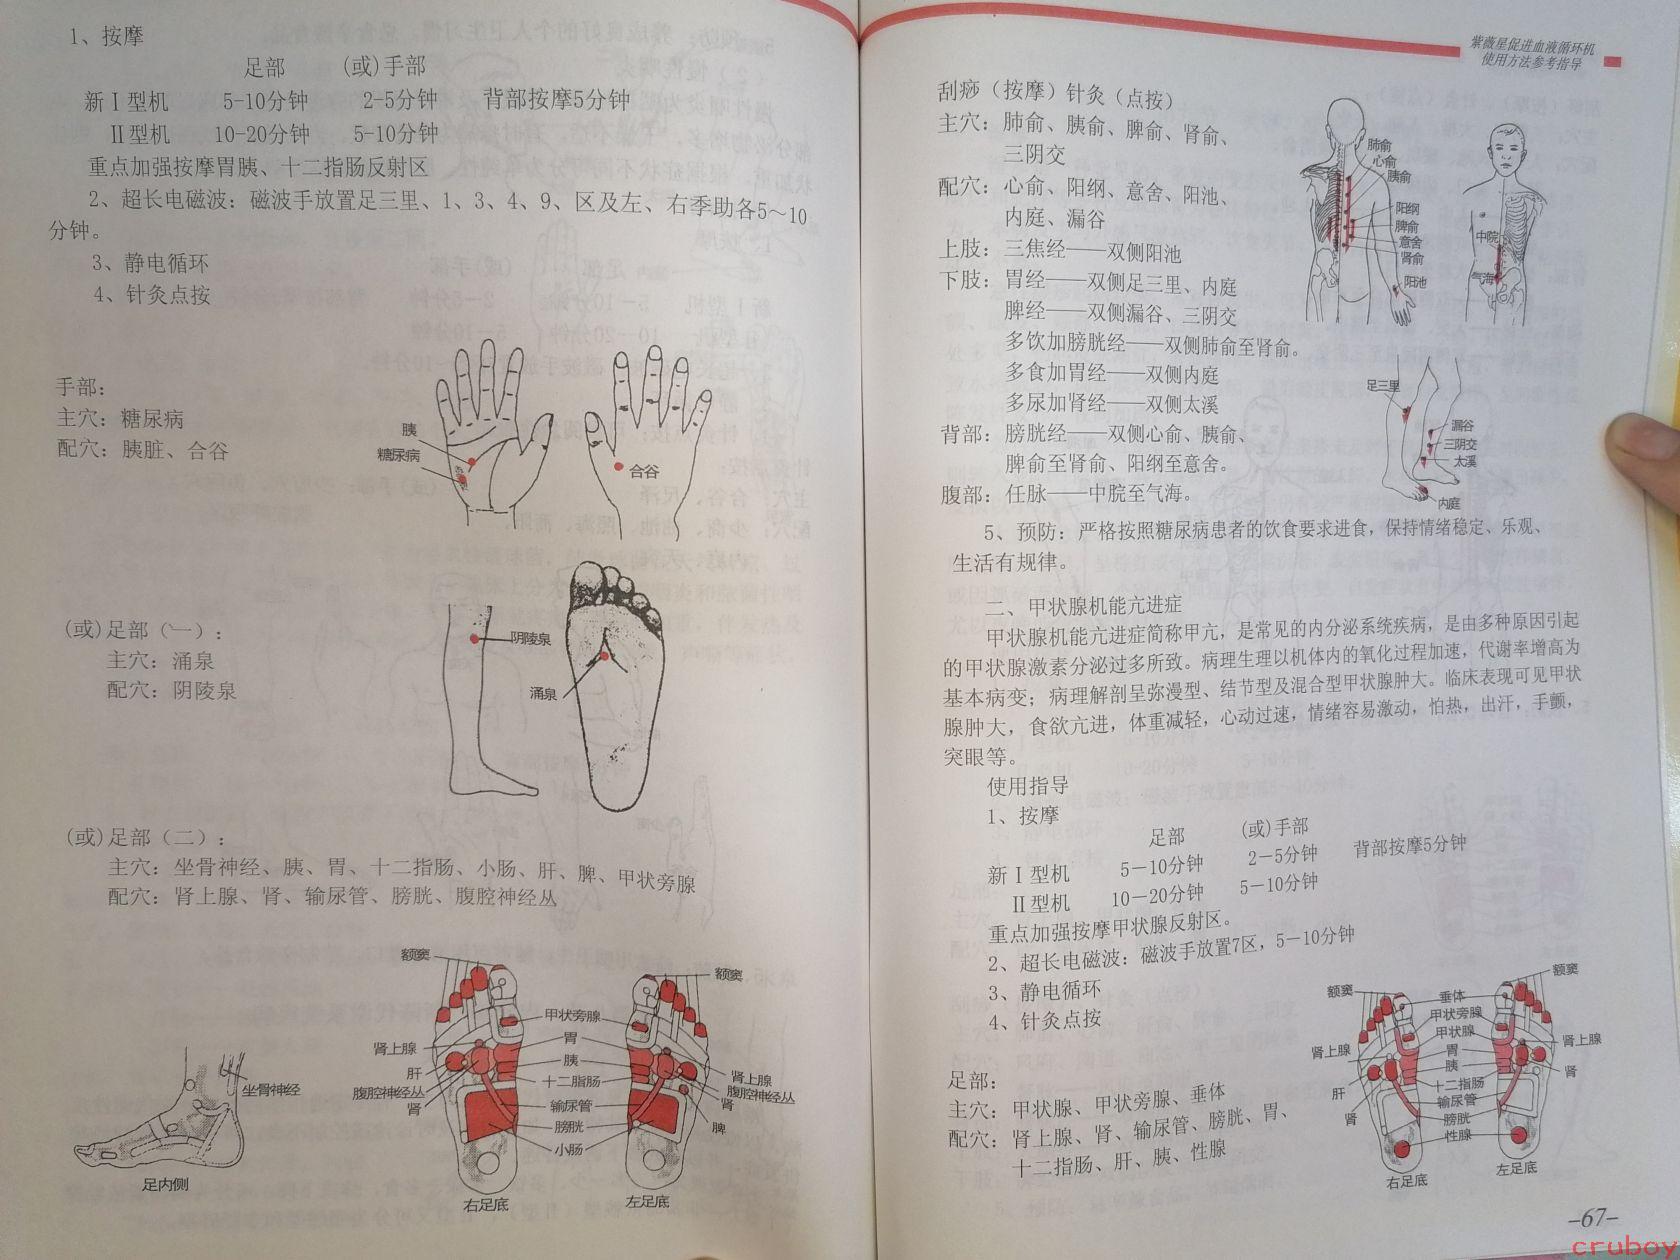 1、按摩
足部 (或)手部
新Ⅰ型机 5-10分钟 2-5分钟 背部按摩5分钟
Ⅱ型机 10-20分钟 5-10分钟
重点加强按摩胃胰、十二指肠反射区
2、超长电磁波：磁波手放置足三里、1、3、4、9、区及左、右季助各5～10
分钟。
3、静电循环
4、针灸点按
手部：
主穴：糖尿病
配穴：胰脏、合谷
胰
糖尿病
合谷
(或)足部（一）：
主穴：涌泉
配穴：阴陵泉
阴陵泉
涌泉
(或)足部（二）：
主穴：坐骨神经、胰、胃、十二指肠、小肠、肝、脾、甲状旁腺
配穴：肾上腺、肾、输尿管、膀胱、腹腔神经丛
坐骨神经
足内侧
额窦
额窦
甲状旁腺
肾上腺
胃
肝
胰
肾上腺
腹腔神经丛
十二脂肠
腹腔神经丛
肾
输尿管
肾
膀胱
脾
小肠
右足底
左足底
紫薇星促进血液循环机
使用方法参考指导
刮痧（按摩）针灸（点按）
主穴：肺俞、胰俞、脾俞、肾俞、
三阴交
配穴：心俞、阳纲、意舍、阳池、
内庭、漏谷
上肢：三焦经——双侧阳池
下肢：胃经——双侧足三里、内庭
脾经——双侧漏谷、三阴交
多饮加膀胱经——双侧肺俞至肾俞。
多食加胃经——双侧内庭
多尿加肾经——双侧太溪
背部：膀胱经——双侧心俞、胰俞、
脾俞至肾俞、阳纲至意舍。
腹部：任脉——中脘至气海。
肺俞
心俞
胰俞
阳纲
脾俞
意舍
肾俞
阳池
中院
气海
足三里
漏谷
三阴交
太溪
内庭
5、预防：严格按照糖尿病患者的饮食要求进食，保持情绪稳定、乐观、
生活有规律。
二、甲状腺机能亢进症
甲状腺机能亢进症简称甲亢，是常见的内分泌系统疾病，是由多种原因引起
的甲状腺激素分泌过多所致。病理生理以机体内的氧化过程加速，代谢率增高为
基本病变；病理解剖呈弥漫型、结节型及混合型甲状腺肿大。临床表现可见甲状
腺肿大，食欲亢进，体重减轻，心动过速，情绪容易激动，怕热，出汗，手颤，
突眼等。
使用指导
1、按摩
足部 (或)手部
新Ⅰ型机 5－10分钟 2－5分钟 背部按摩5分钟
Ⅱ型机 10－20分钟 5－10分钟
重点加强按摩甲状腺反射区。
2、超长电磁波：磁波手放置7区，5－10分钟
3、静电循环
4、针灸点按
足部：
主穴：甲状腺、甲状旁腺、垂体
配穴：肾上腺、肾、输尿管、膀胱、胃、
十二指肠、肝、胰、性腺
额窦
额窦
垂体
甲状旁腺
甲状腺
肾上腺
胃
肾上腺
胰
肾
十二指肠
肝
输尿管
肾
膀胱
性腺
右足底
左足底
-67-
cruboy